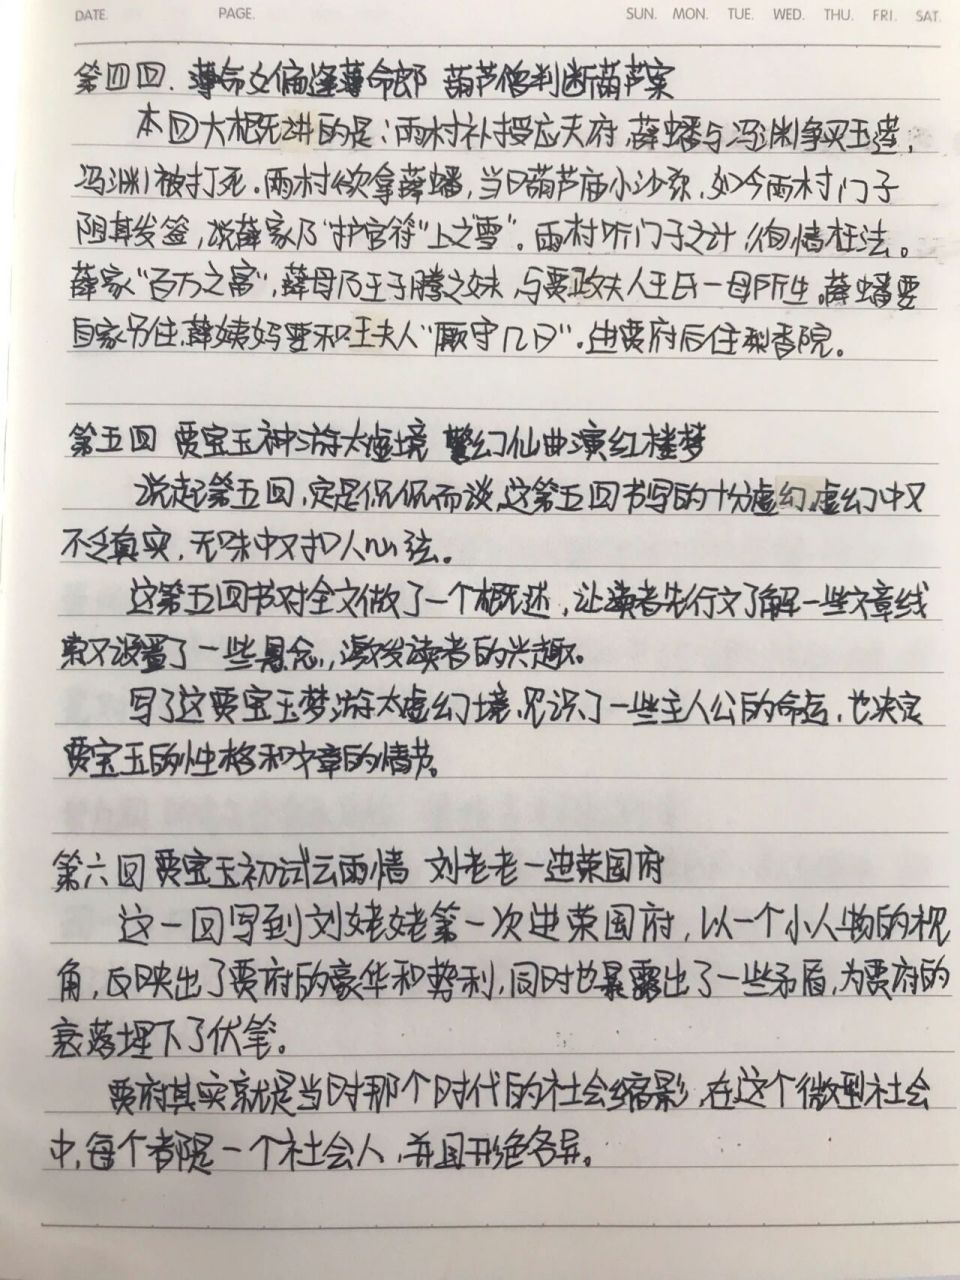 DATE. PAGE. SUN. MON. TUE. WED. THU. FRI. SAT.
第四回. 薄命女偏逢薄命郎 葫芦僧判断葫芦案
本回大概讲的是:雨村补授应天府,薛蟠与冯渊争买丑,
冯渊被打死.雨村欲拿薛蟠,当日葫芦庙小沙弥,如今雨村门子
阻其发签,说薛家乃"护官符"上之"雪"。雨村听门子之计徇情枉法。
薛家"百万之富",薛母乃王子腾之妹,与贾政夫人王氏一母所生。薛蟠要
自家另住,薛姨妈要和王夫人"厮守几日".进贾府后住梨香院。
第五回 贾宝玉神游太虚境 警幻仙曲演红楼梦
说起第五回,定是侃侃而谈,这第五回书写的十分虚幻,虚幻中又
不乏真实,无味中又扣人心弦。
这第五回书对全文做了一个概述,让读者先行文了解一些文章线
索又设置了一些悬念,,激发读者的兴趣。
写了这贾宝玉梦游太虚幻境,见识了一些主人公的命运,也决定
贾宝玉的性格和文章的情节。
第六回 贾宝玉初试云雨情 刘老老一进荣国府
这一回写到刘姥姥第一次进荣国府,以一个小人物的视
角,反映出了贾府的豪华和势利,同时也暴露出了一些矛盾,为贾府的
衰落埋下了伏笔。
贾府其实就是当时那个时代的社会缩影,在这个微型社会
中,每个都是一个社会人,并且形色各异。